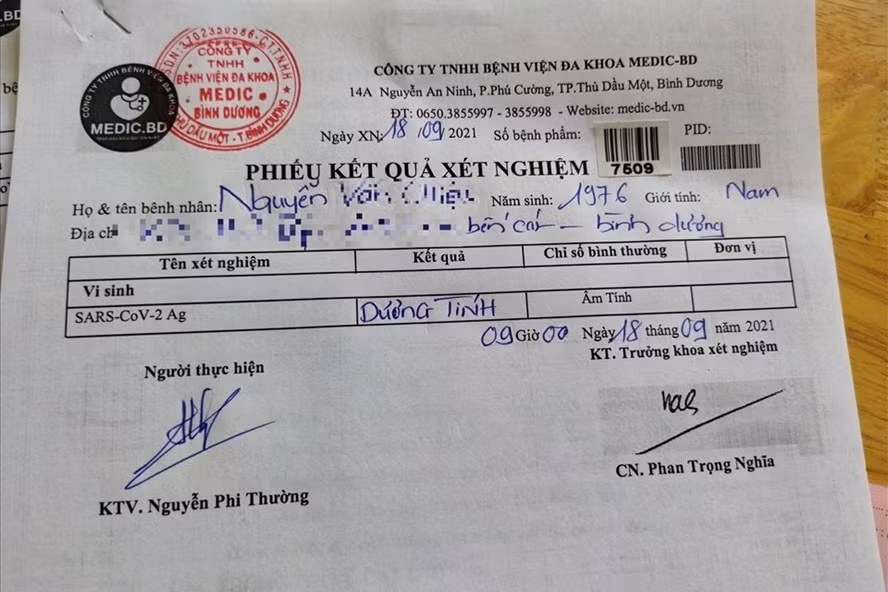 SDN:3702350586-C.T.TNHH
CÔNG TY
TNHH
BỆNH VIỆN ĐA KHOA
MEDIC
BÌNH DƯƠNG
THỦ DẦU MỘT - T.BÌNH DƯƠNG
CÔNG TY TNHH BỆNH VIỆN ĐA KHOA
MEDIC.BD
CÔNG TY TNHH BỆNH VIỆN ĐA KHOA MEDIC-BD
14A Nguyễn An Ninh, P.Phú Cường, TP.Thủ Dầu Một, Bình Dương
ĐT: 0650.3855997 - 3855998 - Website: medic-bd.vn
Ngày XN: 18/09/2021 Số bệnh phẩm: 7509 PID:
PHIẾU KẾT QUẢ XÉT NGHIỆM
Họ & tên bệnh nhân: Nguyễn Năm sinh: 1976 Giới tính: Nam
Địa chỉ bến cát - bình dương
Tên xét nghiệm Kết quả Chỉ số bình thường Đơn vị
Vi sinh
SARS-CoV-2 Ag Dương Tính Âm Tính
09 Giờ 00 Ngày 18 tháng 09 năm 2021
KT. Trưởng khoa xét nghiệm
Người thực hiện
KTV. Nguyễn Phi Thường
CN. Phan Trọng Nghĩa